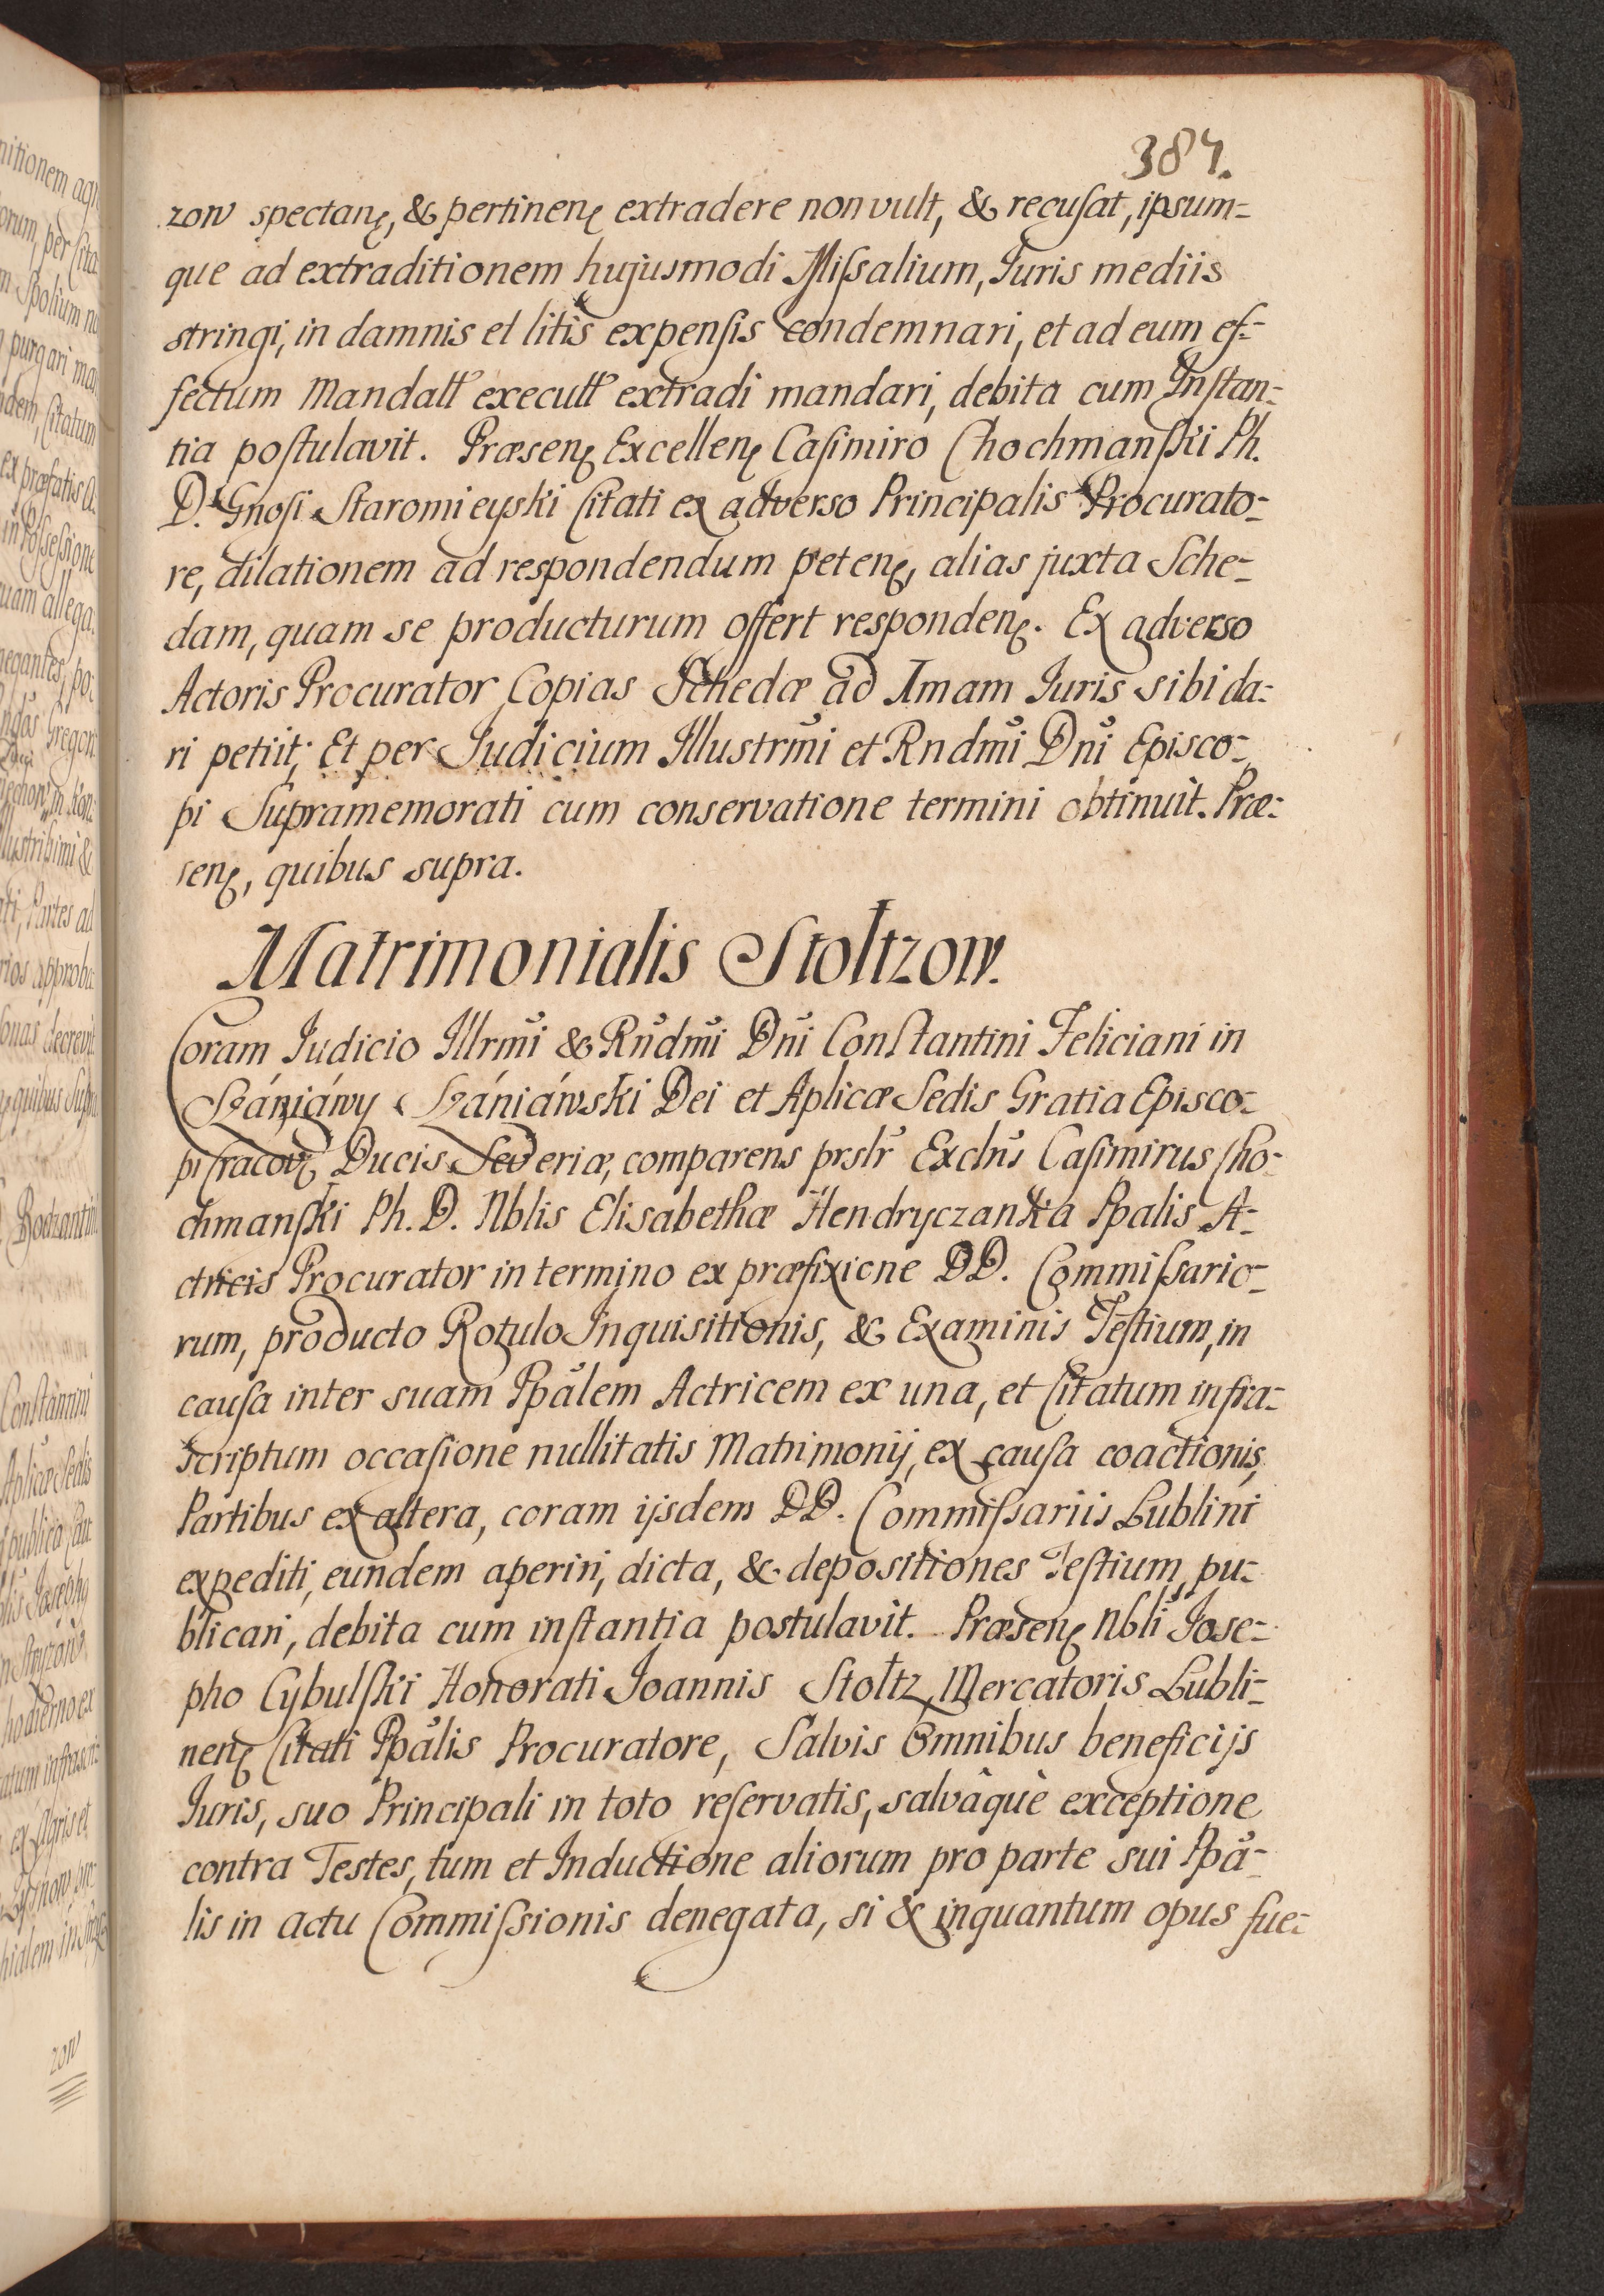 387.
zow spectanꝫ, & pertinenꝫ extradere non vult, & recuſat, ipsum=
que ad extraditionem hujusmodi Miſsalium, Juris mediis
stringi, in damnis et litis expenſis condemnari, et ad eum ef=
fectum Mandatt executt extradi mandari, debita cum Inſtan=
tia poſtulavit. Præsenꝫ Excellenꝫ Caſimiro Chochmanſki Ph.
D. Gnoſi Staromieyski Citati ex adverso Principalis Procurato=
re, dilationem ad respondendum petenꝫ, alias juxta Sche=
dam, quam se producturum offert respondenꝫ. Ex adverso
Actoris Procurator Copias Schedæ ad Imam Juris sibi da=
ri petiit; Et per Judicium Illustrmi et Rndmi Dni Episco=
pi Supramemorati cum conservatione termini obtinuit. Præ=
senꝫ, quibus supra.
Matrimonialis Stoltzow.
Coram Judicio Illrmi & Rndmi Dni Conſtantini Feliciani in
Szániáwy Szániáwski Dei et Aplicæ Sedis Gratia Episco=
pi Cracovꝫ Ducis Severiæ, comparens prslr Exclns Caſimirus Cho=
chmanſki Ph. D. Nblis Elisabethæ Hendryczanka Ppalis A=
ctricis Procurator in termino ex præfixione DD. Commiſsario=
rum, producto Rotulo Inquisitionis, & Examinis Teſtium, in
cauſa inter suam Ppalem Actricem ex una, et Citatum infra=
scriptum occaſione nullitatis Matrimonij, ex cauſa coactionis,
Partibus ex altera, coram ijsdem DD. Commiſsariis Lublini
expediti, eundem aperiri, dicta, & depositiones Teſtium, pu=
blicari, debita cum inſtantia postulavit. Præsenꝫ Nbli Jose=
pho Cybulſki Honorati Joannis Stoltz Mercatoris Lubli=
nenꝫ Citati Ppalis Procuratore, Salvis Omnibus beneficijs
Juris, suo Principali in toto reſervatis, salvâquè exceptione
contra Testes, tum et Inductione aliorum pro parte sui Ppa=
lis in actu Commiſsionis denegata, si & inquantum opus fue=
zow